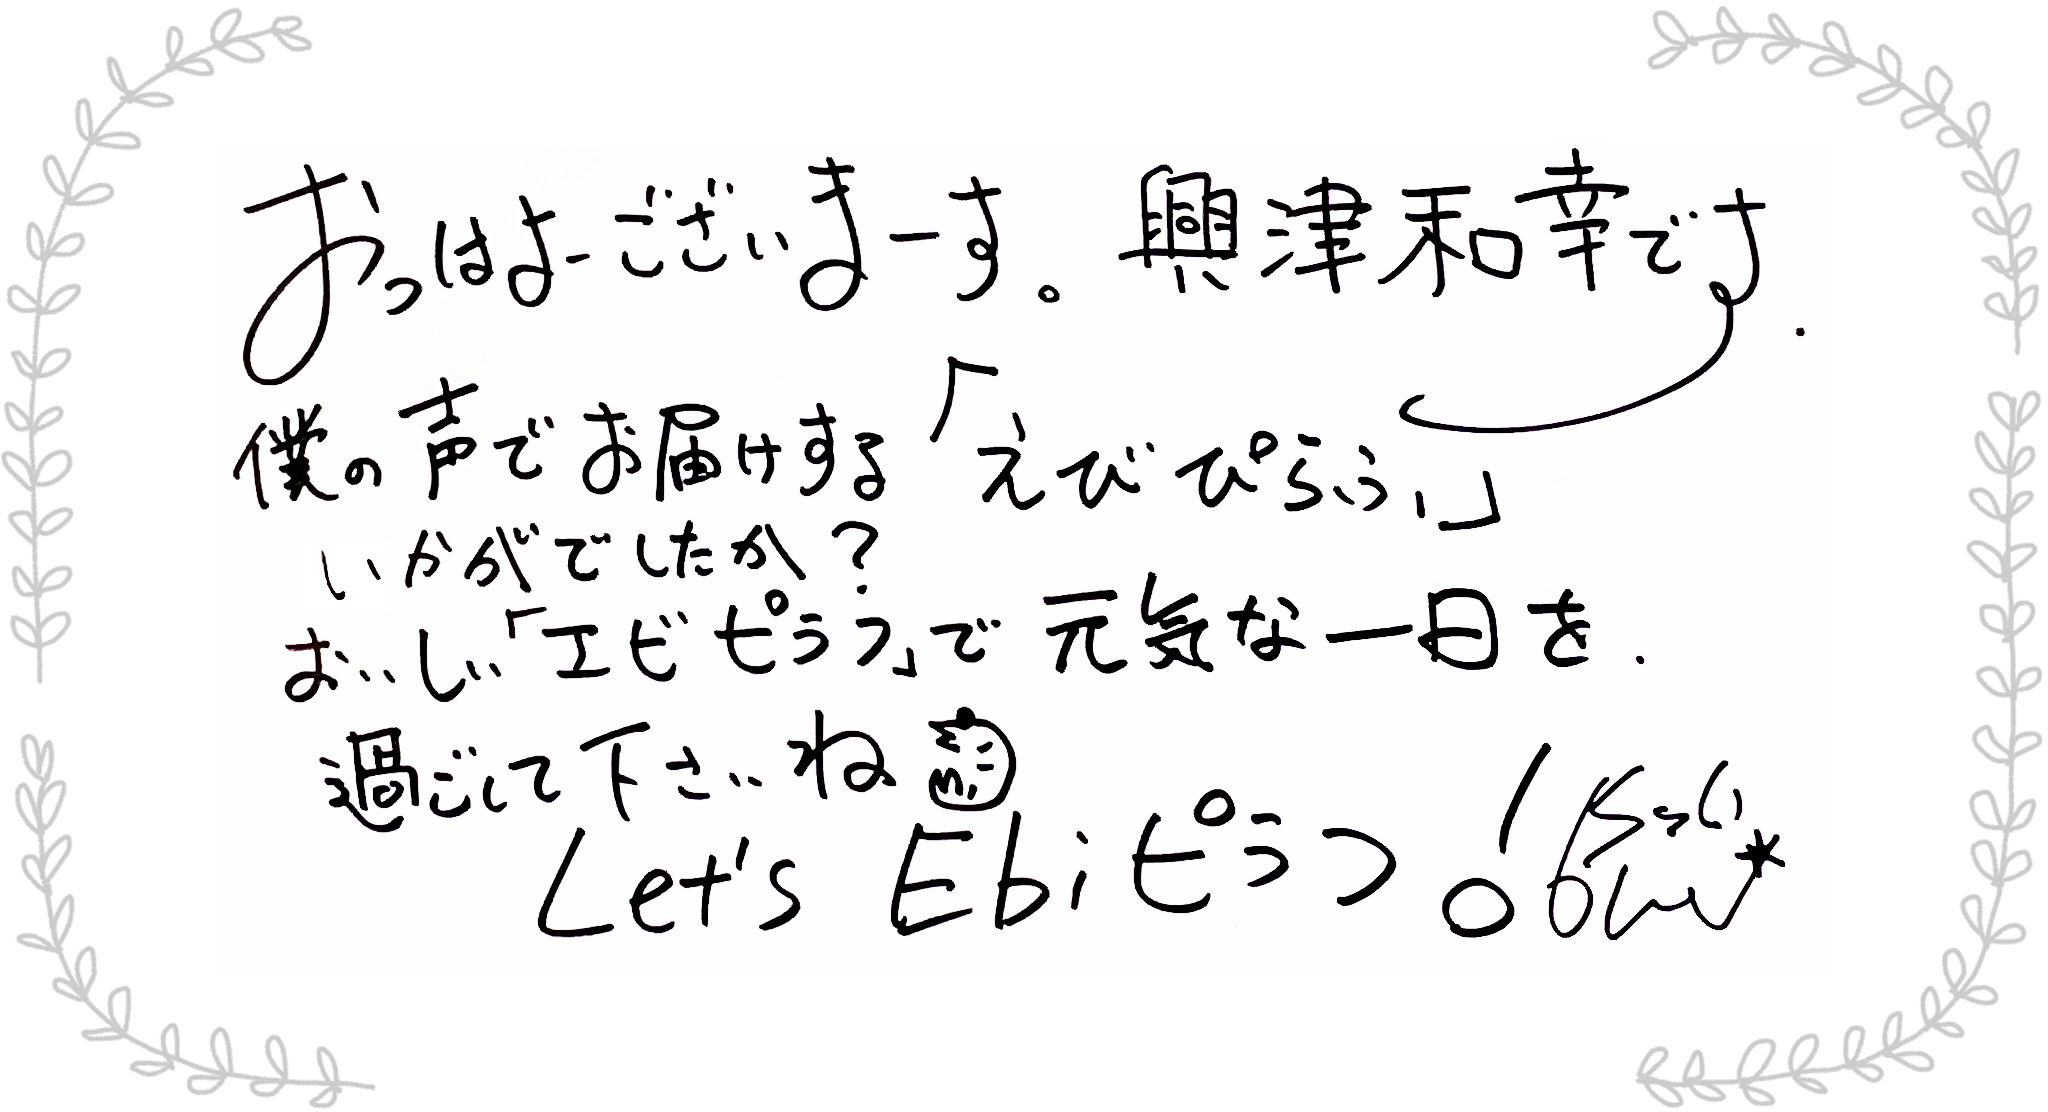 おっはよーございまーす。興津和幸です.
僕の声でお届けする「えびぴらふ」
いかがでしたか?
おいしい「エビピラフ」で元気な一日を.
過ごして下さいね
Let's Ebiピラフ!